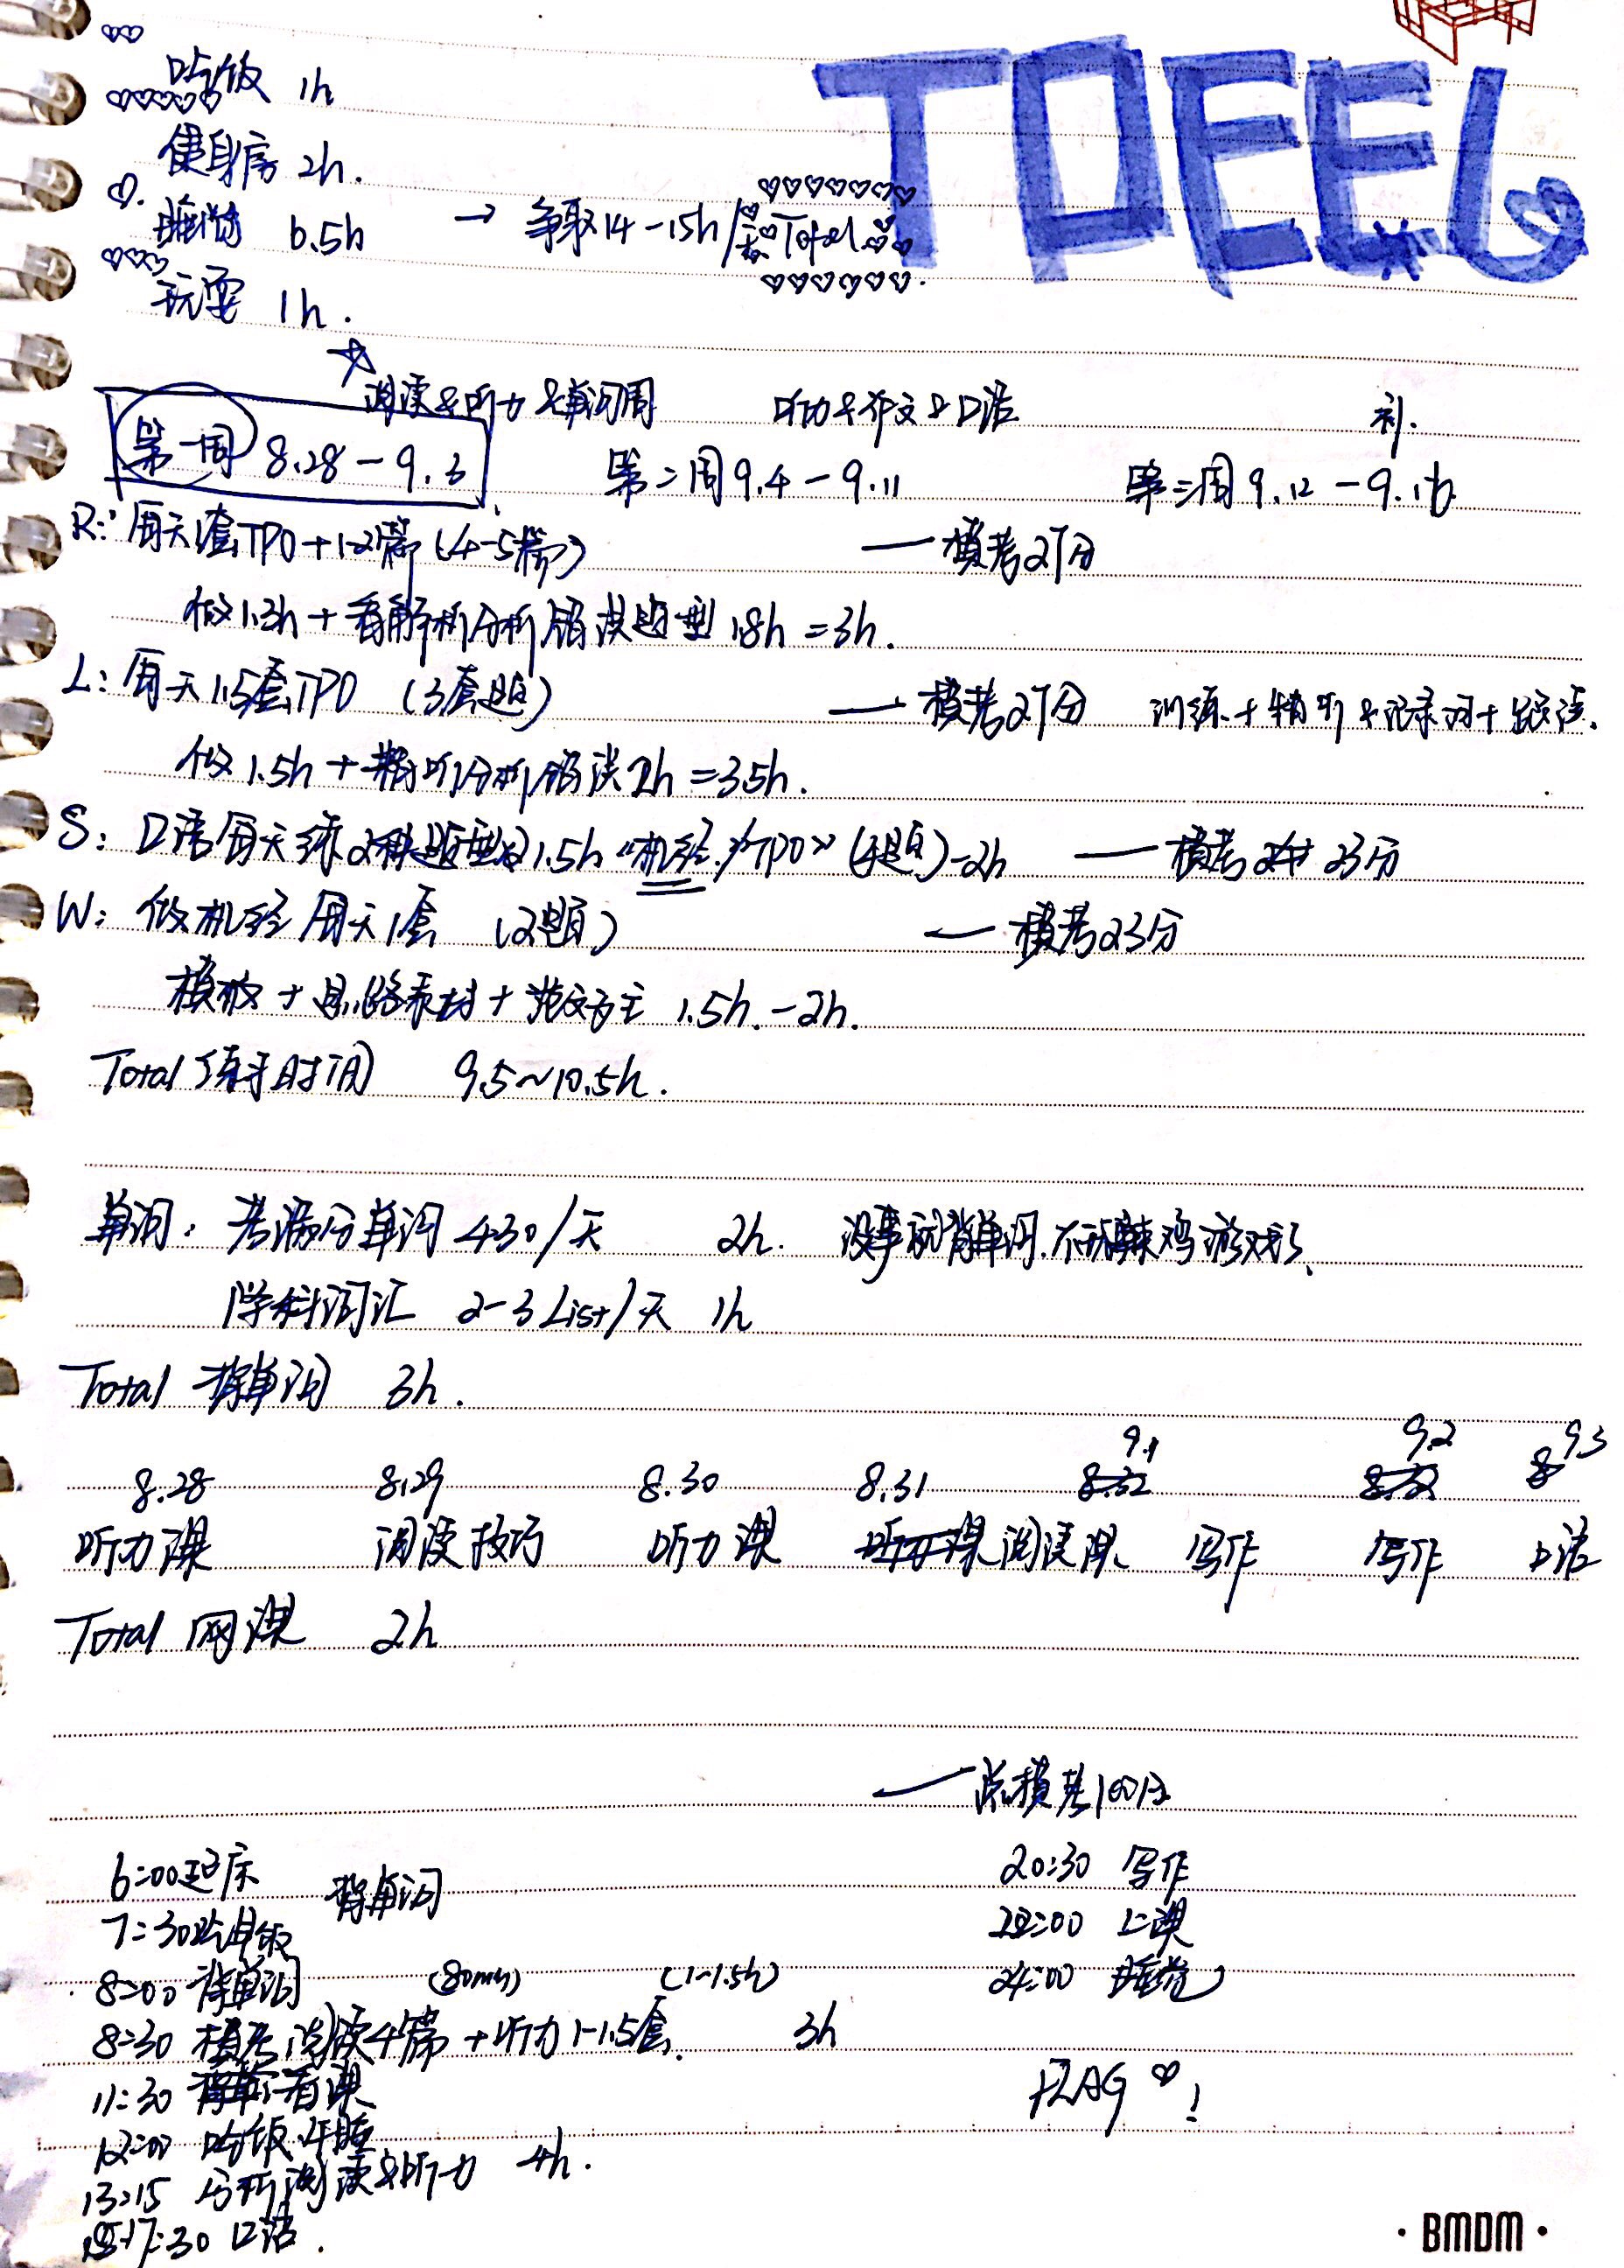 TOEFL
吃饭 1h
健身房 2h.
睡觉 6.5h → 争取14-15h/天 Toefl
玩耍 1h.
阅读&听力&单词周 听力&作文&口语 补.
第一周 8.28-9.3 第二周 9.4-9.11 第三周 9.12-9.16
R: 每天1套TPO+1-2篇(4-5篇) —模考27分
做1.2h+看解析分析错误题型 1.8h=3h.
L: 每天1.5套TPO (3套题) —模考27分 训练+精听&记录词+跟读.
做1.5h+精听分析错误2h=3.5h.
S: 口语每天练2种题型 1.5h "机经为TPO" (4题)-2h —模考 23分
W: 做机经 每天1套 (2题) —模考23分
模板+思路素材+范文为主 1.5h-2h.
Total 练习时间 9.5~10.5h.
单词: 考满分单词 430/天 2h. 没事就背单词.不玩辣鸡游戏了.
学科词汇 2-3 List/天 1h
Total 背单词 3h.
9.1 9.2 9.3
8.28 8.29 8.30 8.31 8.32
听力课 阅读技巧 听力课 听力课 阅读课 写作 写作 口语
Total 网课 2h
—总模考100分
6:00起床 背单词 20:30 写作
7:30吃早饭 22:00 上课
8:00 背单词 (80min) (1-1.5h) 24:00 睡觉
8:30 模考阅读4篇+听力1-1.5套. 3h
11:30 看课 FLAG !
12:00 吃饭.午睡
13:15 分析阅读&听力 4h.
17:30 口语.
·BMDM·